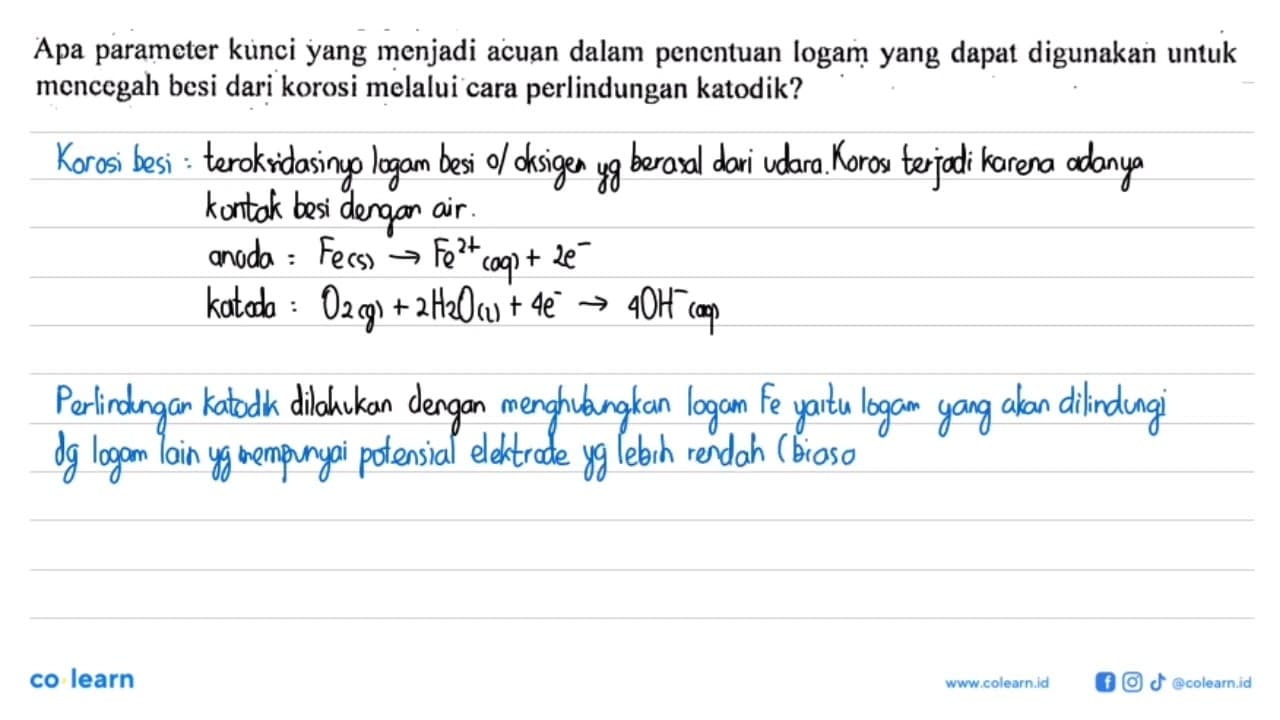 Apa parameter kunci yang menjadi acuan dalam penentuan logam yang dapat digunakan untuk
mencegah besi dari korosi melalui cara perlindungan katodik?
Korosi besi : teroksidasinya logam besi o/ oksigen yg berasal dari udara. Korosi terjadi karena adanya
kontak besi dengan air.
anoda : Fe(s) → Fe²⁺(aq) + 2e⁻
katoda : O₂(g) + 2H₂O(l) + 4e⁻ → 4OH⁻(aq)
Perlindungan katodik dilakukan dengan menghubungkan logam Fe yaitu logam yang akan dilindungi
dg logam lain yg mempunyai potensial elektrode yg lebih rendah (biasa
co learn
www.colearn.id
@colearn.id